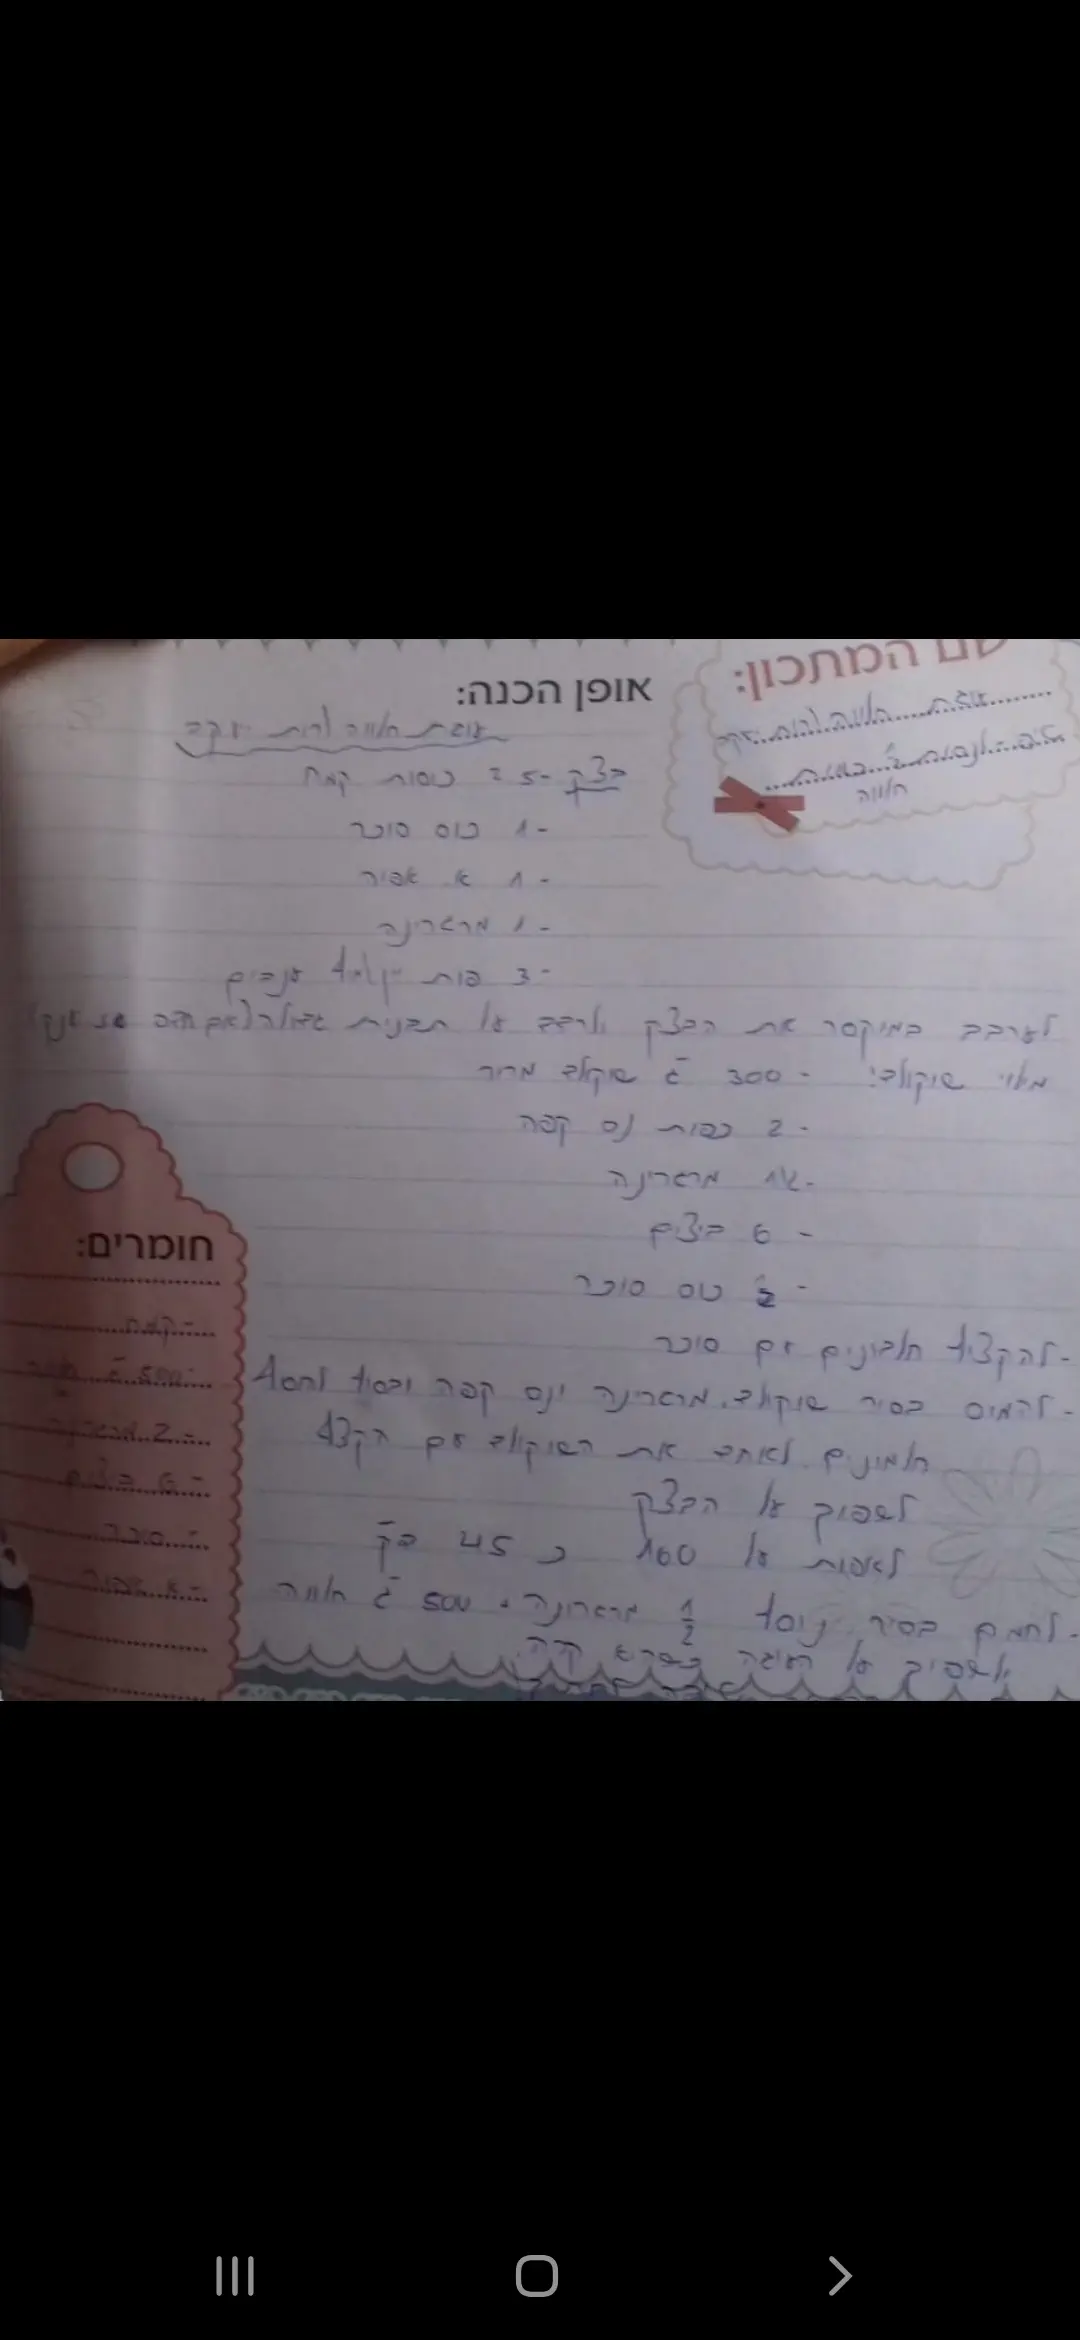 שם המתכון:
עוגת חלווה לרות יעקב
חלווה
אופן הכנה:
עוגת חלווה לרות יעקב
בצק - 5 כוסות קמח
- 1 כוס סוכר
- 1 א. אפיה
- 1 מרגרינה
- 3 מיץ ענבים
לערבב במיקסר את הבצק ולרדד על תבנית גדולה
מילוי שוקולד: - 300 ג' שוקולד מריר
- 2 כפות נס קפה
מרגרינה
- 6 ביצים
- 2 כוס סוכר
- להקציף חלבונים עם סוכר
- להמיס בסיר שוקולד, מרגרינה ונס קפה ובסוף להוסיף
חלמונים. לאחד את השוקולד עם הקצף
לשפוך על הבצק
לאפות על 160 כ 45 דק'
- לחמם בסיר 1/2 מרגרינה + 500 ג' חלווה
ולשפוך על העוגה כשהיא קרה
חומרים:
- קמח
- 500 ג' חלווה
- 2 מרגרינה
- 6 ביצים
- סוכר
- א. אפיה